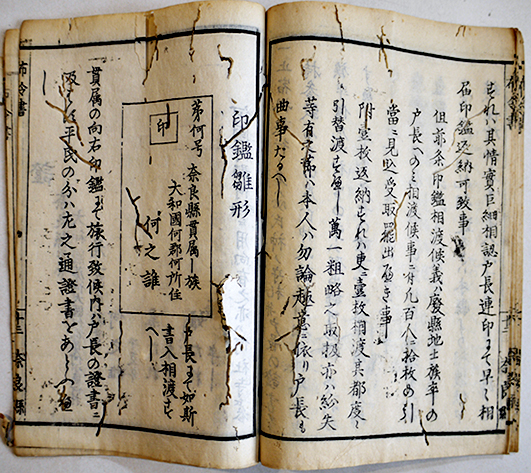 すれハ其情實巨細相認戸長連印まて早々相
届印鑑返納可致事
但前条印鑑相渡候義ハ廢縣地士族卒の
戸長へのミ相渡候事ニ付凡百人ニ拾枚の引
當ニ見込受取罷出へき事
附壹枚返納すれハ更ニ壹枚相渡其都度〻
〻引替渡すへし萬一粗略之取扱亦ハ紛失
等有之節ハ本人ハ勿論趣意ニ依り戸長も
曲事たるへし
印鑑雛形
印
第何号 奈良縣貫属士族
大和國何郡何所住
何之誰
戸長まて如斯
書入相渡すへし
貫属の向右印鑑まて旅行致候内ハ戸長の證書ニ
平民の分ハ左之通證書を
布令書
十三 奈良縣